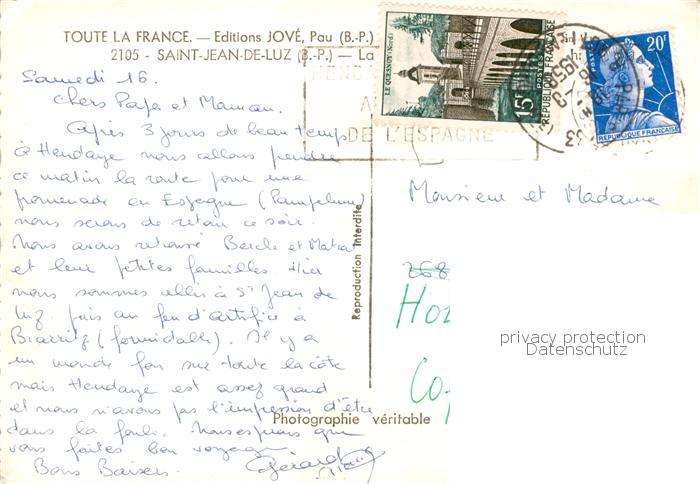 TOUTE LA FRANCE. — Editions JOVÉ, Pau (B.-P.)
2105 - SAINT-JEAN-DE-LUZ (B.-P.) — La
LE QUESNOY (Nord)
15F
POSTES
REPUBLIQUE FRANÇAISE
20F
REPUBLIQUE FRANÇAISE
DE L'ESPAGNE
Samedi 16.
Chers Papa et Maman.
Après 3 jours de beau temps
à Hendaye nous allons prendre
ce matin la route pour une
promenade en Espagne (Pampelune)
nous serons de retour ce soir.
Nous avons retrouvé et
et leur petites familles. Hier
nous sommes allés à St Jean de
Luz puis au feu d'artifice à
Biarritz (formidable). Il y a
un monde fou sur toute la côte
mais Hendaye est assez grand
et nous n'avons pas l'impression d'être
dans la foule. Nous espérons que
vous faites bon voyage.
Bons Baisers. Gérard
Reproduction Interdite
Photographie véritable
Monsieur et Madame
268
Ho
Co
privacy protection
Datenschutz